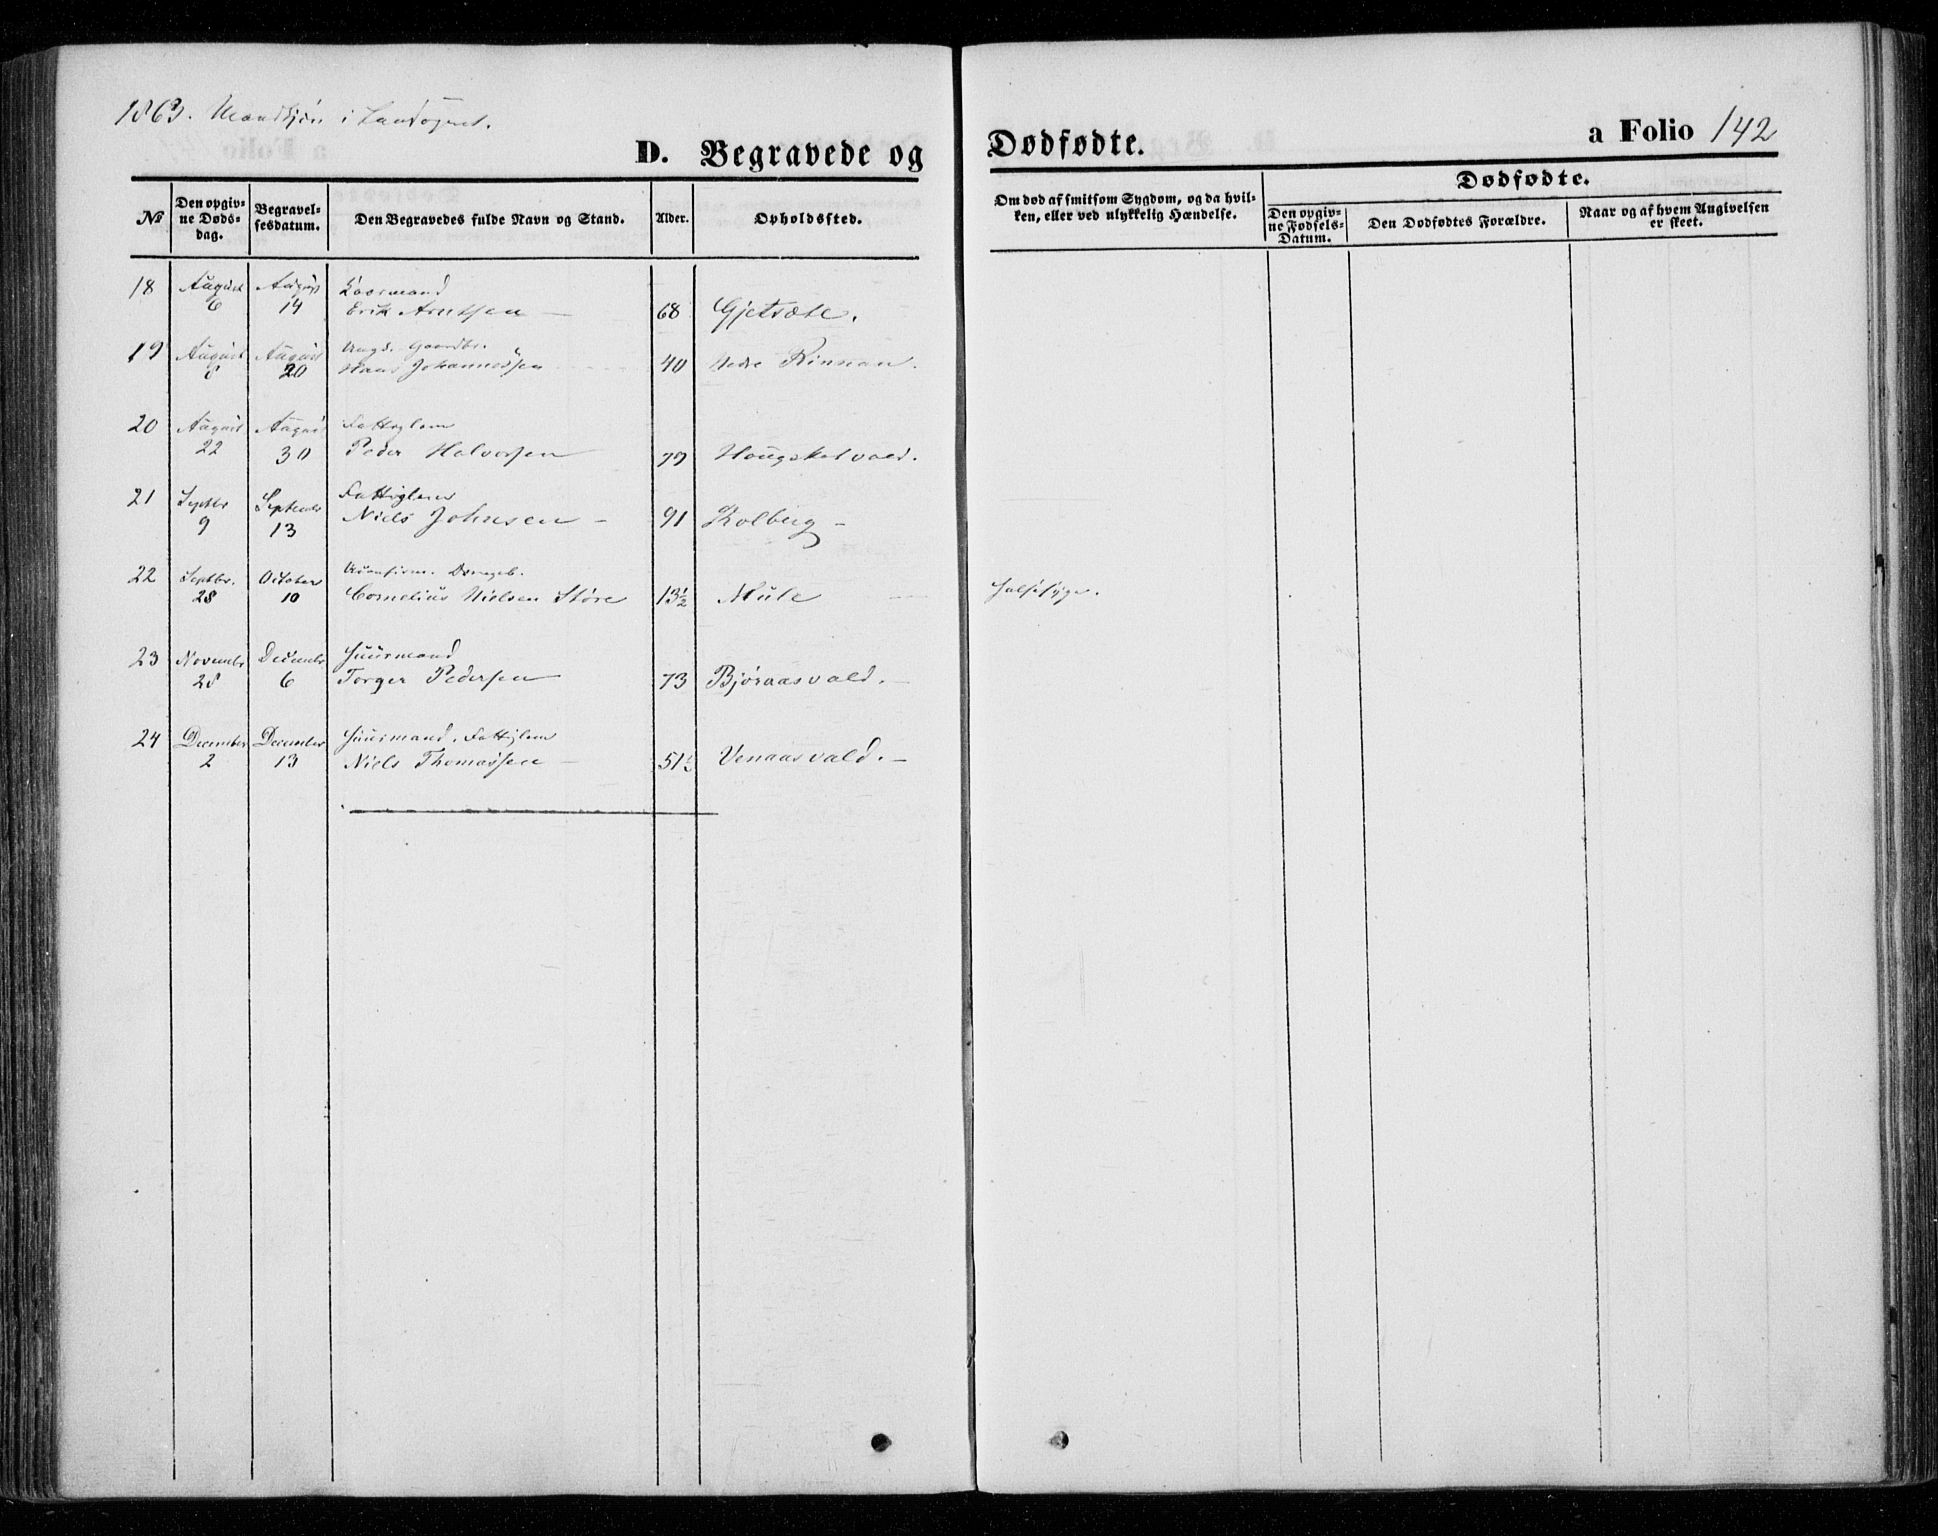 1863. Mandkjøn i Landsognet.
D. Begravede og Dødfødte.
a Folio 142
No
Den opgivne Dødsdag.
Begravelsesdatum.
Den Begravedes fulde Navn og Stand.
Alder.
Opholdssted.
Om død af smitsom Sygdom, og da hvilken, eller ved ulykkelig Hændelse.
Dødfødte.
Den opgivne Fødsels-Datum.
Den Dødfødtes Forældre.
Naar og af hvem Angivelsen er skeet.
18 August 6 August 14 Kaarmand
Erik Arntsen 68 Gjetvote.
19 August 8 August 20 Ungk. Gaardbr.
Hans Johannessen 40 Nedre Rinnan.
20 August 22 August 30 Fattiglem
Peder Halvorsen 79 Hougskotvald.
21 Septbr 9 September 13 Fattiglem
Niels Johnsen 91 Kolberg
22 Septbr. 28 October 10 Ukonfirm. Drengeb.
Cornelius Nielsen Støre 13½ Mule Halssyge.
23 Novembr 28 Decembr 6 Huusmand
Torger Pedersen 73 Bjøraasvald.
24 December 2 December 13 Huusmand. Fattiglem
Niels Thomassen 51½ Venaasvald.